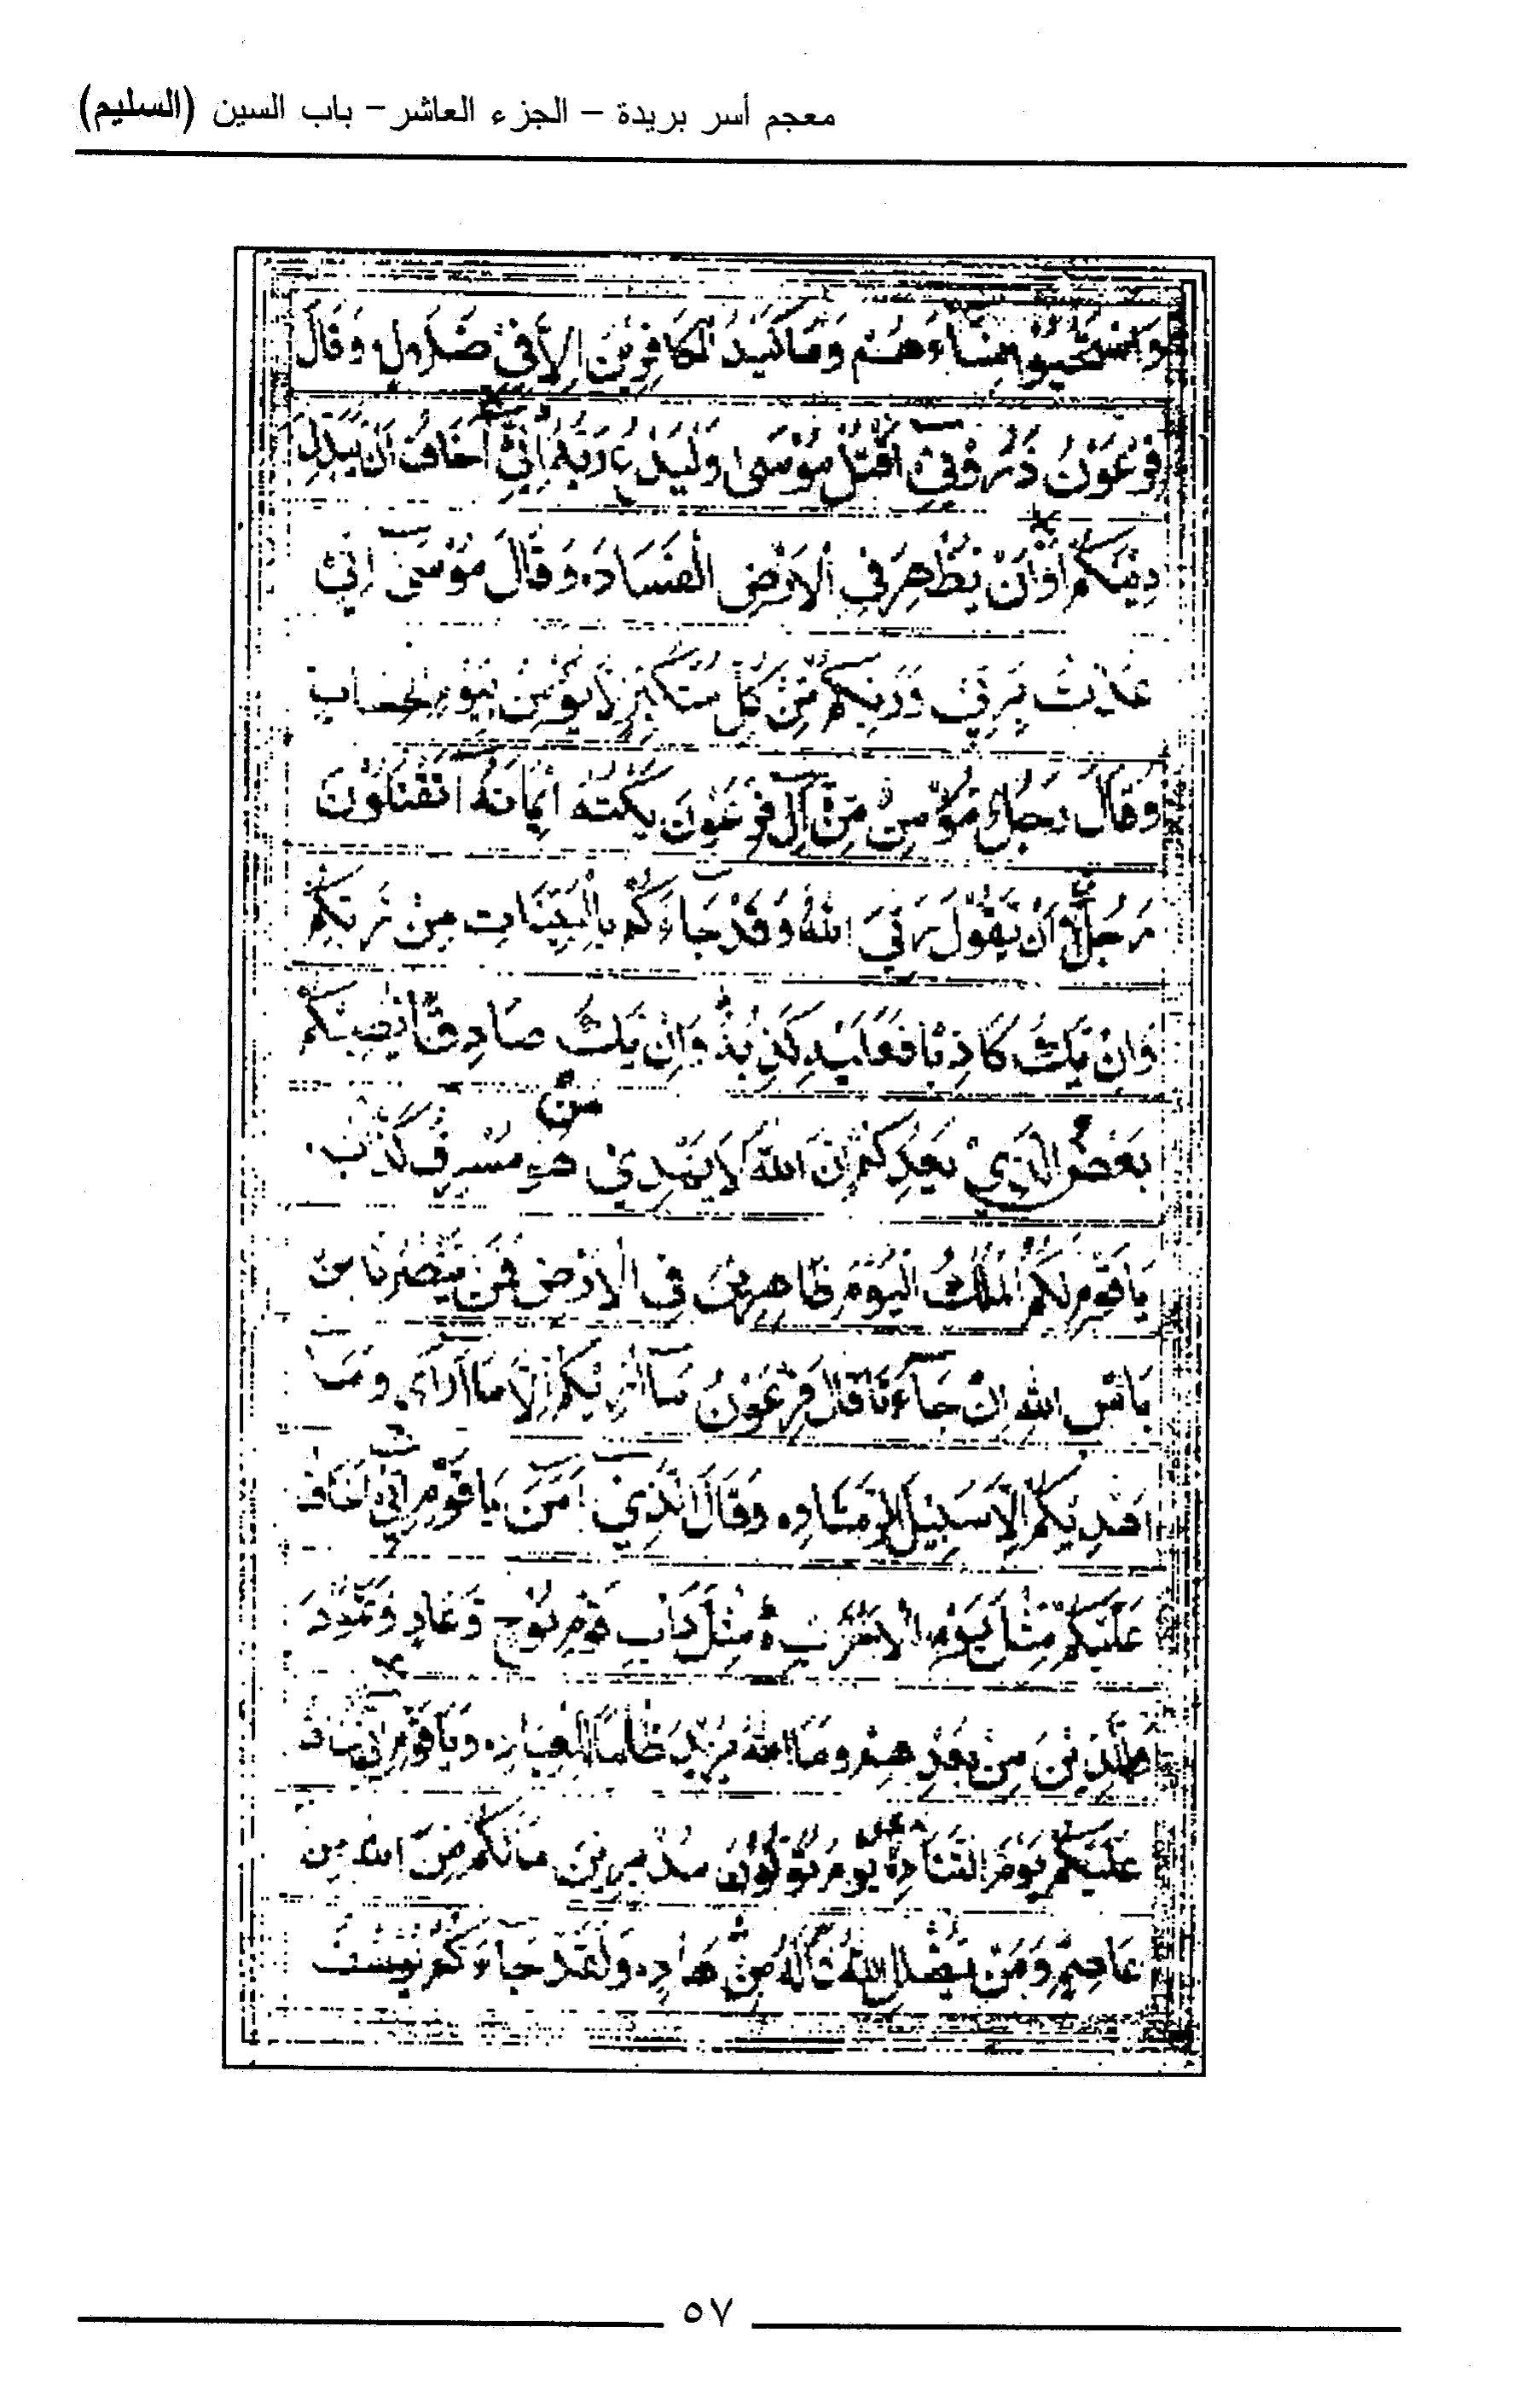 معجم أسر بريدة – الجزء العاشر – باب السين (السليم)
وَاسْتَحْيُوا نِسَاءَهُمْ وَمَا كَيْدُ الْكَافِرِينَ إِلَّا فِي ضَلَالٍ وَقَالَ
فِرْعَوْنُ ذَرُونِي أَقْتُلْ مُوسَى وَلْيَدْعُ رَبَّهُ إِنِّي أَخَافُ أَنْ يُبَدِّلَ
دِينَكُمْ أَوْ أَنْ يُظْهِرَ فِي الْأَرْضِ الْفَسَادَ وَقَالَ مُوسَى إِنِّي
عُذْتُ بِرَبِّي وَرَبِّكُمْ مِنْ كُلِّ مُتَكَبِّرٍ لَا يُؤْمِنُ بِيَوْمِ الْحِسَابِ
وَقَالَ رَجُلٌ مُؤْمِنٌ مِنْ آلِ فِرْعَوْنَ يَكْتُمُ إِيمَانَهُ أَتَقْتُلُونَ
رَجُلًا أَنْ يَقُولَ رَبِّيَ اللَّهُ وَقَدْ جَاءَكُمْ بِالْبَيِّنَاتِ مِنْ رَبِّكُمْ
وَإِنْ يَكُ كَاذِبًا فَعَلَيْهِ كَذِبُهُ وَإِنْ يَكُ صَادِقًا يُصِبْكُمْ
بَعْضُ الَّذِي يَعِدُكُمْ إِنَّ اللَّهَ لَا يَهْدِي مَنْ هُوَ مُسْرِفٌ كَذَّابٌ
يَا قَوْمِ لَكُمُ الْمُلْكُ الْيَوْمَ ظَاهِرِينَ فِي الْأَرْضِ فَمَنْ يَنْصُرُنَا مِنْ
بَأْسِ اللَّهِ إِنْ جَاءَنَا قَالَ فِرْعَوْنُ مَا أُرِيكُمْ إِلَّا مَا أَرَى وَمَا
أَهْدِيكُمْ إِلَّا سَبِيلَ الرَّشَادِ وَقَالَ الَّذِي آمَنَ يَا قَوْمِ إِنِّي أَخَافُ
عَلَيْكُمْ مِثْلَ يَوْمِ الْأَحْزَابِ مِثْلَ دَأْبِ قَوْمِ نُوحٍ وَعَادٍ وَثَمُودَ
وَالَّذِينَ مِنْ بَعْدِهِمْ وَمَا اللَّهُ يُرِيدُ ظُلْمًا لِلْعِبَادِ وَيَا قَوْمِ إِنِّي أَخَافُ
عَلَيْكُمْ يَوْمَ التَّنَادِ يَوْمَ تُوَلُّونَ مُدْبِرِينَ مَا لَكُمْ مِنَ اللَّهِ مِنْ
عَاصِمٍ وَمَنْ يُضْلِلِ اللَّهُ فَمَا لَهُ مِنْ هَادٍ وَلَقَدْ جَاءَكُمْ يُوسُفُ
٥٧